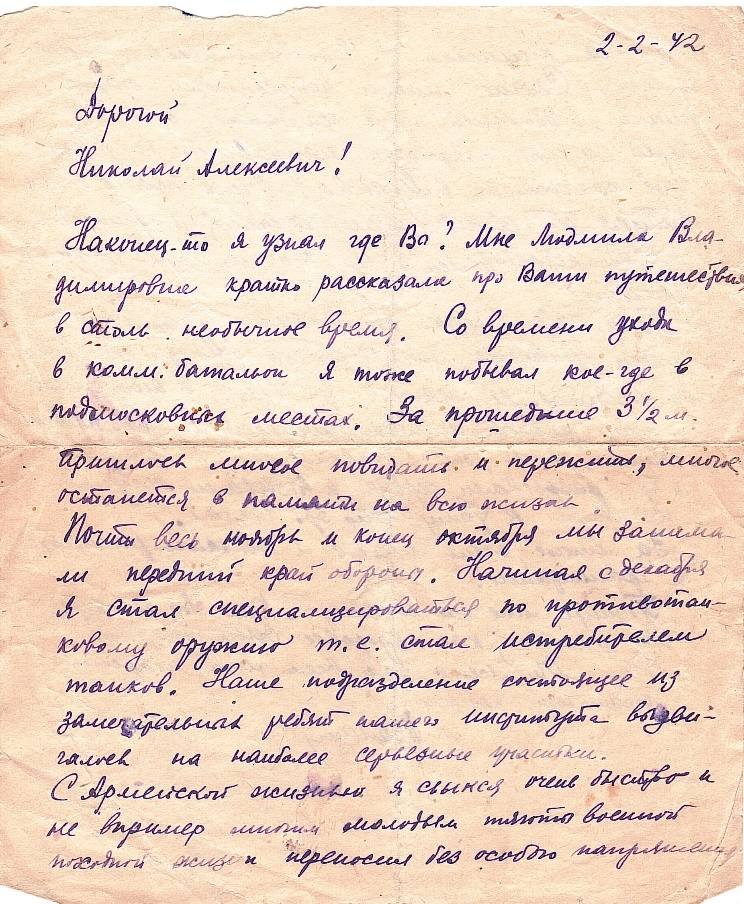 2-2-42
Дорогой
Николай Алексеевич!
Наконец-то я узнал где Вы? Мне Людмила Вла-
димировна кратко рассказала про Ваши путешествия
в столь необычное время. Со времени ухода
в комм. батальон я тоже побывал кое-где в
подмосковных местах. За прошедшие 3 1/2 м.
пришлось многое повидать и пережить, многое
останется в памяти на всю жизнь
Почти весь ноябрь и конец октября мы занима-
ли передний край обороны. Начиная с декабря
я стал специализироваться по противотан-
ковому оружию т.е. стал истребителем
танков. Наше подразделение состоящее из
замечательных ребят нашего института выдви-
галось на наиболее серьезные участки.
С Армейской жизнью я свыкся очень быстро и
не впример многим молодым тяготы военной
походной жизни переносил без особого напряжения